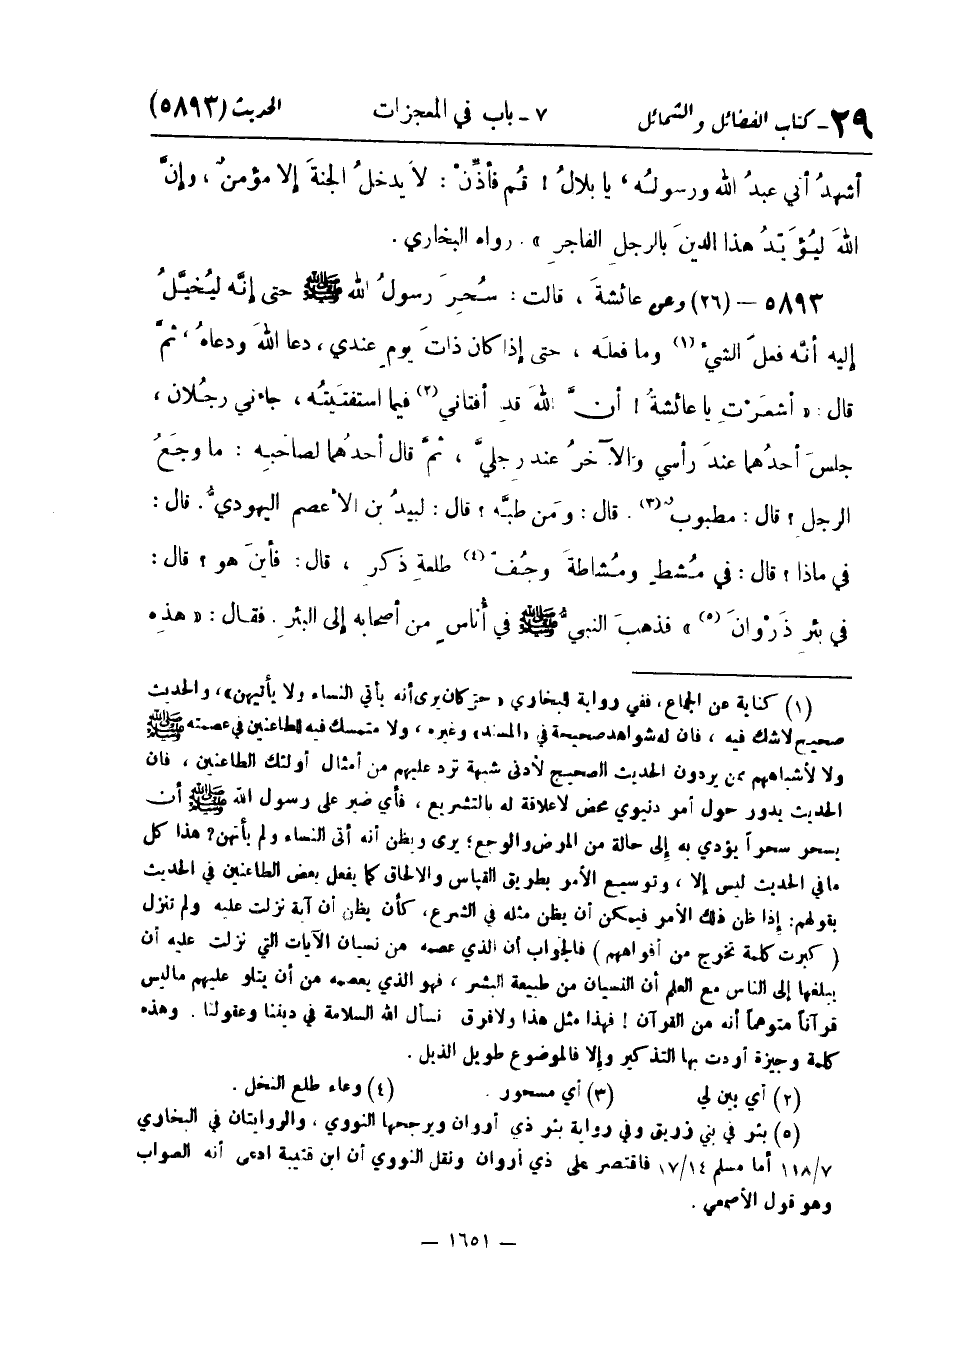 ٢٩ـ كتاب الفضائل والشمائل ٧ ـ باب في المعجزات الحديث (٥٨٩٣)
أشهدُ أني عبدُ الله ورسولُه ، يا بلالُ ! قُم فأذِّنْ : لا يدخلُ الجنةَ إلا مؤمنٌ ، وإنَّ
اللهَ ليُؤَيّدُ هذا الدينَ بالرجلِ الفاجرِ » . رواه البخاري .
٥٨٩٣ – (٢٦) وعن عائشةَ ، قالت : سُحِرَ رسولُ الله ﷺ حتى إنَّه ليُخيَّلُ
إليه أنَّه فعلَ الشيءَ (١) وما فعلَه ، حتى إذا كان ذاتَ يومٍ عندي ، دعا اللهَ ودعاهُ ، ثمَّ
قال : « أشعَرْتِ يا عائشةُ ! أنَّ اللهَ قد أفتاني (٢) فيما استفتَيتُه ، جاءني رجُلان ،
جلسَ أحدُهما عندَ رأسي والآخرُ عند رجليَّ ، ثمَّ قال أحدُهما لصاحبِه : ما وجَعُ
الرجلِ ؟ قال : مطبوبٌ (٣) . قال : ومَن طبَّه ؟ قال : لبيدُ بن الأعصم اليهوديُّ . قال :
في ماذا ؟ قال : في مُشطٍ ومُشاطةٍ وجُفّ (٤) طلعةِ ذكرٍ ، قال : فأينَ هو ؟ قال :
في بئرِ ذَرْوانَ (٥) » فذهبَ النبيُّ ﷺ في أُناسٍ من أصحابه إلى البئرِ . فقال : « هذهِ
(١) كناية عن الجماع ، ففي رواية للبخاري « حتى كان يرى أنه يأتي النساء ولا يأتيهن » ، والحديث
صحيح لاشك فيه ، فان له شواهد صحيحة في « المسند » وغيره ، ولا متمسك فيه للطاعنين في عصمته ﷺ
ولا لأشباههم ممن يردون الحديث الصحيح لأدنى شبهة ترد عليهم من أمثال أولئك الطاعنين ، فان
الحديث يدور حول أمر دنيوي محض لاعلاقة له بالتشريع ، فأي ضير على رسول الله ﷺ أن
يسحر سحراً يؤدي به إلى حالة من المرض والوجع ؛ يرى ويظن أنه أتى النساء ولم يأتهن؟ هذا كل
مافي الحديث ليس إلا ، وتوسيع الأمر بطريق القياس والالحاق كما يفعل بعض الطاعنين في الحديث
بقولهم : إذا ظن ذلك الأمر فيمكن أن يظن مثله في الشرع ، كأن يظن أن آية نزلت عليه ولم تنزل
( كبرت كلمة تخرج من أفواههم ) فالجواب أن الذي عصمه من نسيان الآيات التي نزلت عليه أن
يبلغها إلى الناس مع العلم أن النسيان من طبيعة البشر ، فهو الذي يعصمه من أن يتلو عليهم ماليس
قرآناً متوهماً أنه من القرآن ! فهذا مثل هذا ولافرق نسأل الله السلامة في ديننا وعقولنا . وهذه
كلمة وجيزة أردت بها التذكير وإلا فالموضوع طويل الذيل .
(٢) أي بين لي (٣) أي مسحور . (٤) وعاء طلع النخل .
(٥) بئر في بني زريق وفي رواية بئر ذي أروان ويرجحها النووي ، والروايتان في البخاري
١١٨/٧ أما مسلم ١٧/١٤ فاقتصر على ذي أروان ونقل النووي أن ابن قتيبة ادعى أنه الصواب
وهو قول الأصمعي .
– ١٦٥١ –